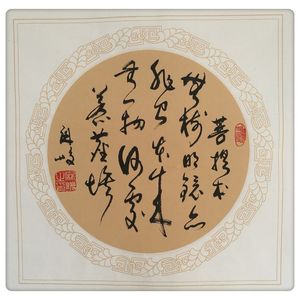 菩提本
無樹明鏡亦
非台本来
無一物何處
惹塵埃